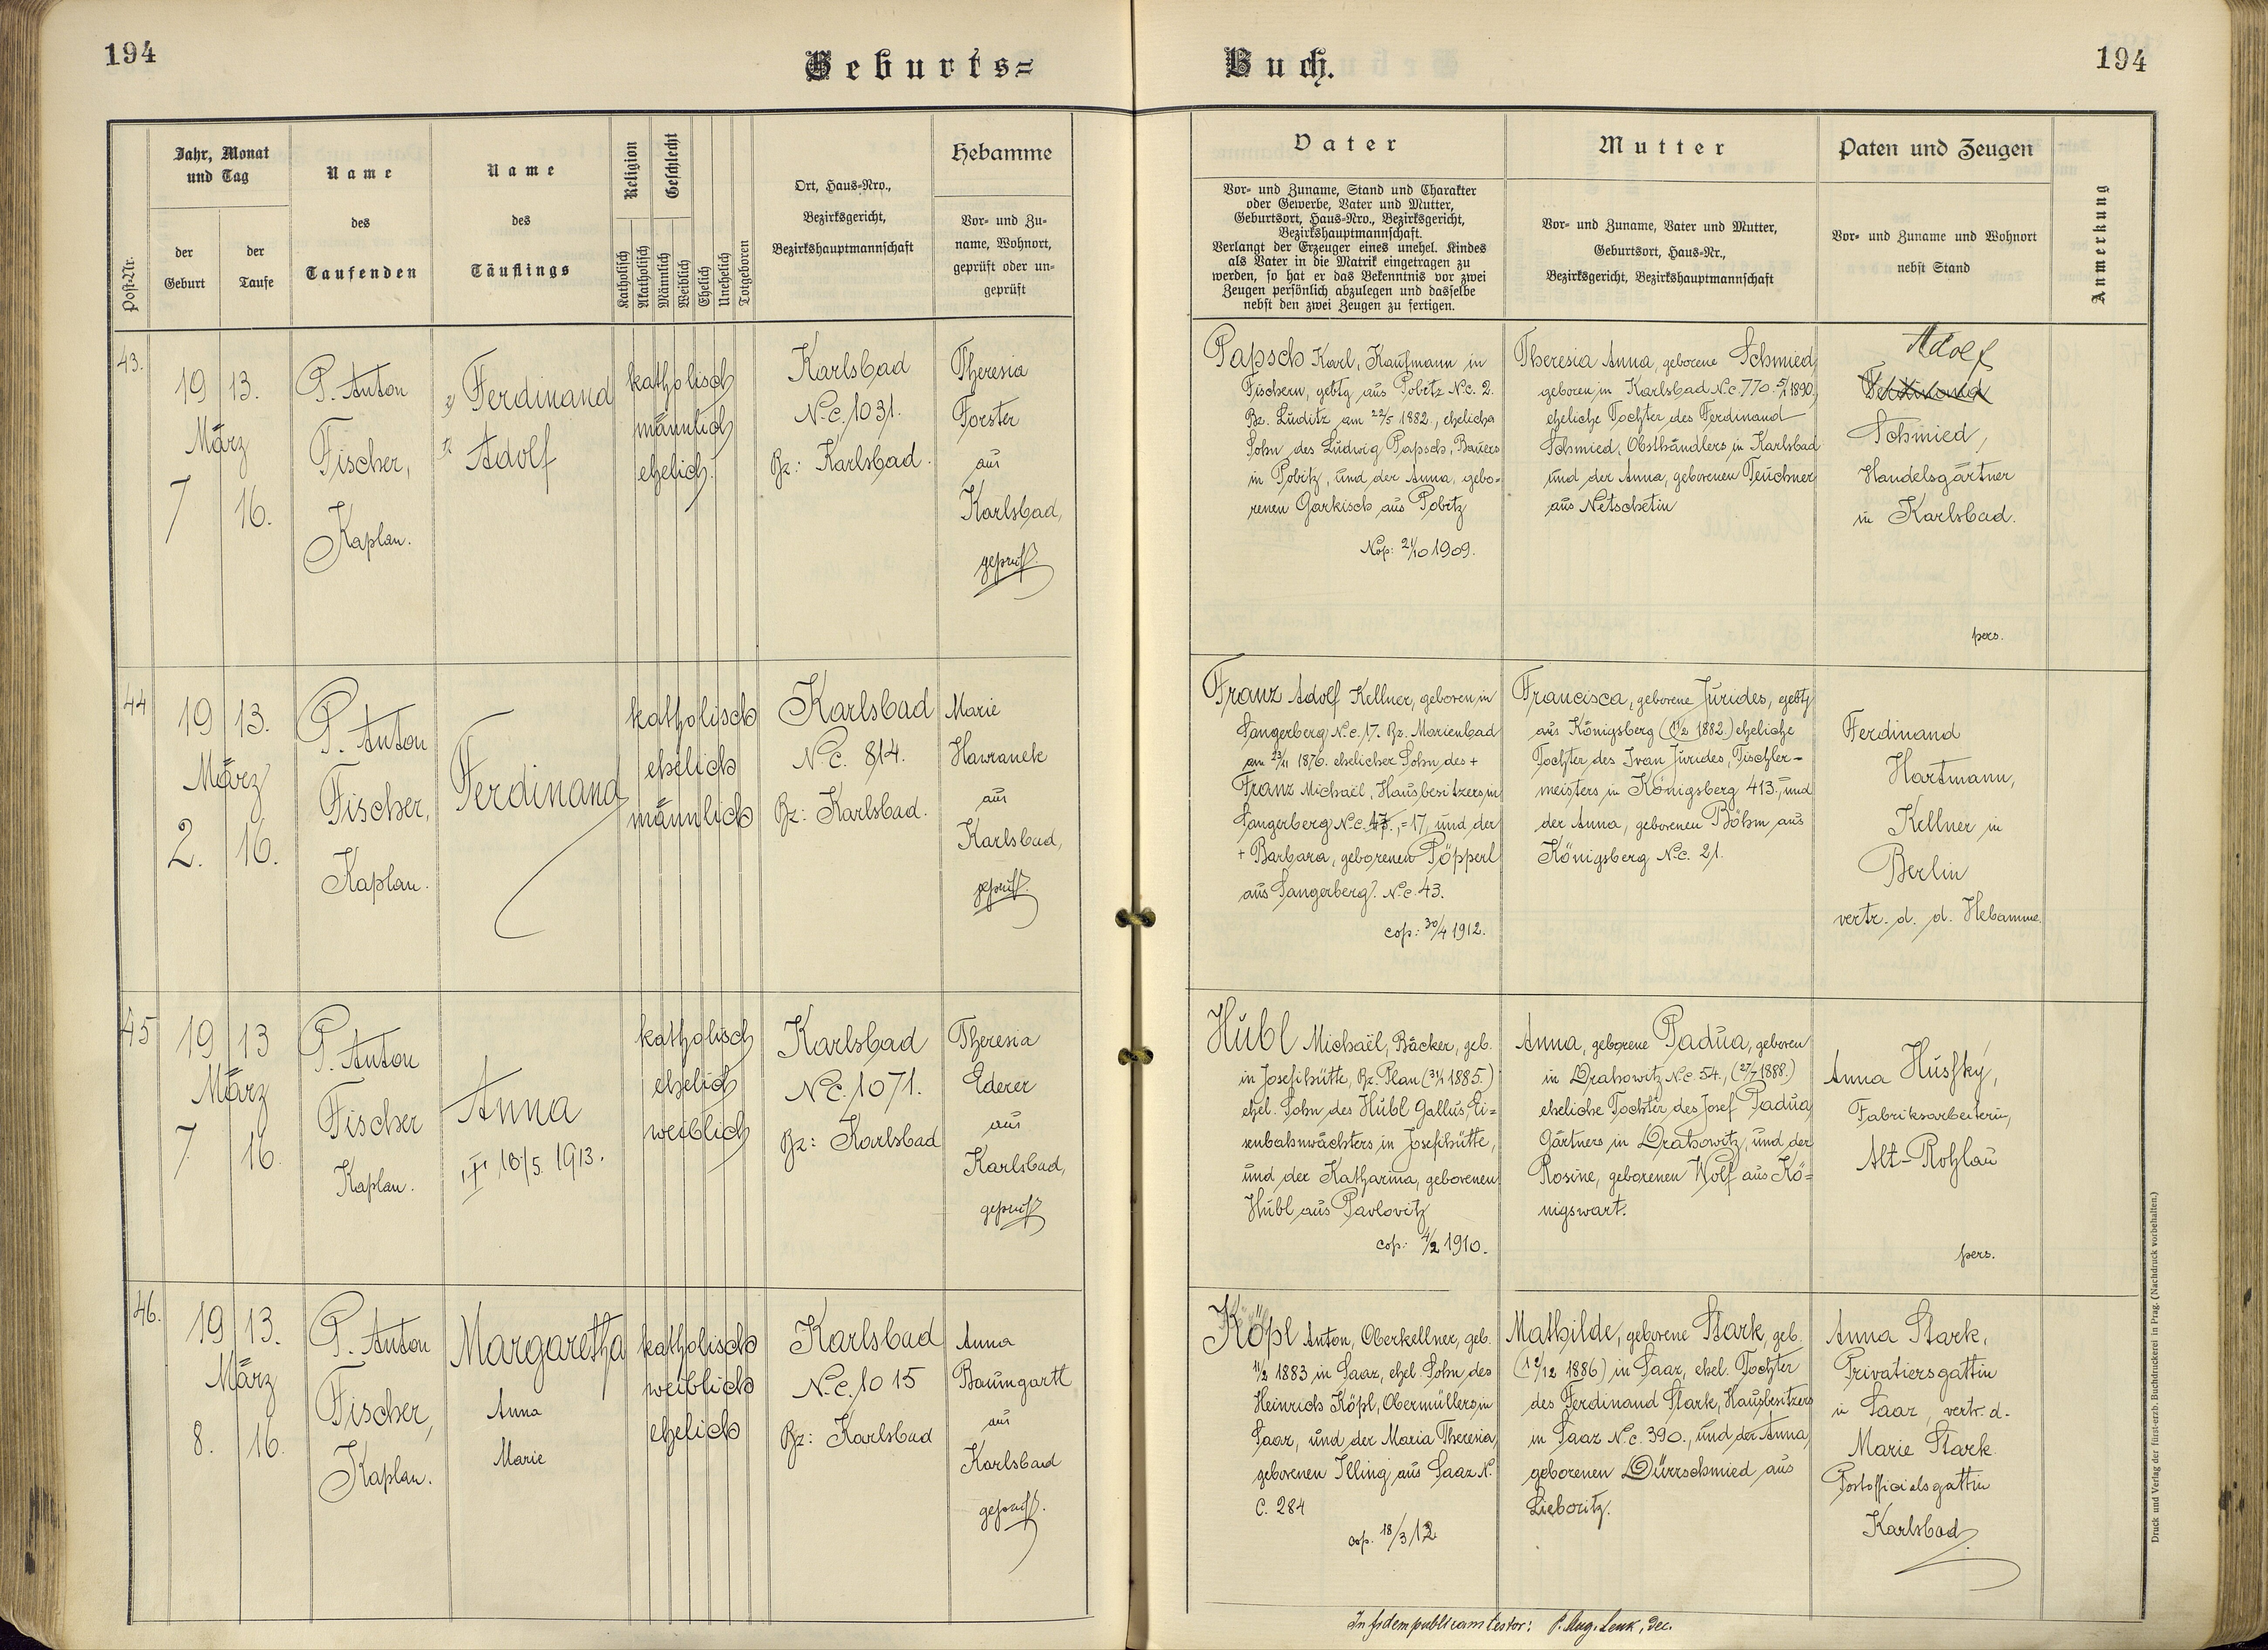 194
Geburts=
Buch.
194
Post-Nr.
Jahr, Monat
und Tag
der
Geburt
der
Taufe
Name
des
Taufenden
Name
des
Täuflings
Religion
Katholisch
Akatholisch
Geschlecht
Männlich
Weiblich
Ehelich
Unehelich
Totgeboren
Ort, Haus-Nro.,
Bezirksgericht,
Bezirkshauptmannschaft
Hebamme
Vor- und Zu-
name, Wohnort,
geprüft oder un-
geprüft
Vater
Vor- und Zuname, Stand und Charakter
oder Gewerbe, Vater und Mutter,
Geburtsort, Haus-Nro., Bezirksgericht,
Bezirkshauptmannschaft.
Verlangt der Erzeuger eines unehel. Kindes
als Vater in die Matrik eingetragen zu
werden, so hat er das Bekenntnis vor zwei
Zeugen persönlich abzulegen und dasselbe
nebst den zwei Zeugen zu fertigen.
Mutter
Vor- und Zuname, Vater und Mutter,
Geburtsort, Haus-Nr.,
Bezirksgericht, Bezirkshauptmannschaft
Paten und Zeugen
Vor- und Zuname und Wohnort
nebst Stand
Anmerkung
43.
19 13.
März
7 16.
P. Anton
Fischer,
Kaplan.
2) Ferdinand
1) Adolf
katholisch
männlich
ehelich.
Karlsbad
N.c. 1031.
Bz: Karlsbad.
Theresia
Forster
aus
Karlsbad,
geprüft.
Papsch Karl, Kaufmann in
Fischern, gebtg aus Pobitz N.c. 2.
Bz. Luditz am 22/5 1882, ehelicher
Sohn des Ludwig Papsch, Bauers
in Pobitz, und der Anna, gebo=
renen Garkisch aus Pobitz
Cop: 24/10 1909.
Theresia Anna, geborene Schmied,
geboren in Karlsbad N.c. 770. 5/1 1890,
eheliche Tochter des Ferdinand
Schmied, Obsthändlers in Karlsbad
und der Anna, geborenen Teuchner
aus Netschetin
Adolf
Ferdinand
Schmied,
Handelsgärtner
in Karlsbad.
pers.
44
19 13.
März
2. 16.
P. Anton
Fischer,
Kaplan.
Ferdinand
katholisch
ehelich
männlich
Karlsbad
N.c. 814.
Bz: Karlsbad.
Marie
Hawranek
aus
Karlsbad,
geprüft.
Franz Adolf Kellner, geboren in
Sangerberg N.c. 17. Bz. Marienbad
am 23/11 1876. ehelicher Sohn des +
Franz Michael, Hausbesitzers in
Sangerberg N.c. 47., =17, und der
+ Barbara, geborenen Pöpperl
aus Sangerberg N.c. 43.
cop: 30/4 1912.
Francisca, geborene Jurides, gebtg
aus Königsberg (1/2 1882.) eheliche
Tochter des Ivan Jurides, Tischler-
meisters in Königsberg 413., und
der Anna, geborenen Böhm aus
Königsberg N.c. 21.
Ferdinand
Hartmann,
Kellner in
Berlin
vertr. d. d. Hebamme.
45
19 13
März
7 16.
P. Anton
Fischer
Kaplan.
Anna
† 16/5. 1913.
katholisch
ehelich
weiblich
Karlsbad
N.c. 1071.
Bz: Karlsbad
Theresia
Ederer
aus
Karlsbad,
geprüft
Hubl Michaël, Bäcker, geb.
in Josefihütte, Bz. Plan (31/1 1885.)
ehel. Sohn des Hubl Gallus, Ei=
senbahnwächters in Josefihütte,
und der Katharina, geborenen
Hubl aus Pavlovitz
cop: 4/2 1910.
Anna, geborene Padua, geboren
in Drahowitz N.c. 54., (27/7 1888.)
eheliche Tochter des Josef Padua,
Gärtners in Drahowitz, und der
Rosine, geborenen Wolf aus Kö=
nigswart.
Anna Hussky,
Fabriksarbeiterin,
Alt-Rohlau
pers.
46.
19 13.
März
8. 16.
P. Anton
Fischer,
Kaplan.
Margaretha
Anna
Marie
katholisch
weiblich
ehelich
Karlsbad
N.c. 1015
Bz: Karlsbad
Anna
Baumgartl
aus
Karlsbad
geprüft.
Köpl Anton, Oberkellner, geb.
11/2 1883 in Saaz, ehel. Sohn des
Heinrich Köpl, Obermüllers in
Saaz, und der Maria Theresia,
geborenen Illing aus Saaz N.
C. 284
cop. 18/3 12.
Mathilde, geborene Stark, geb.
(12/12 1886) in Saaz, ehel. Tochter
des Ferdinand Stark, Hausbesitzers
in Saaz N.c. 390., und der Anna,
geborenen Dürrschmied aus
Lieboritz.
Anna Stark,
Privatiersgattin
in Saaz, vertr. d.
Marie Stark
Postofficialsgattin
Karlsbad
In fidem publicam testor: P. Aug. Lenk, Dec.
Druck und Verlag der fürst-erzb. Buchdruckerei in Prag. (Nachdruck vorbehalten.)